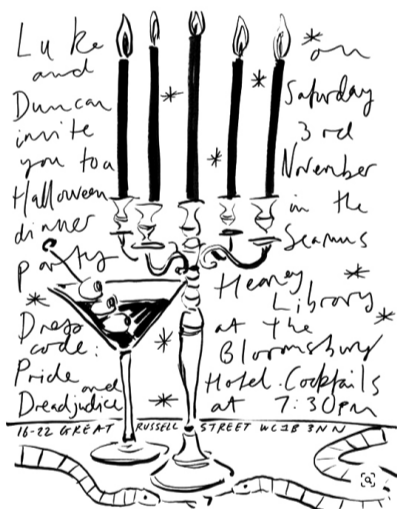 Luke
and
Duncan
invite
you to a
Halloween
dinner
party
Dress
code:
Pride
and
Dreadjudice
on
Saturday
3rd
November
in the
Seamus
Heaney
Library
at the
Bloomsbury
Hotel. Cocktails
at 7:30pm
16-22 GREAT RUSSELL STREET WC1B 3NN